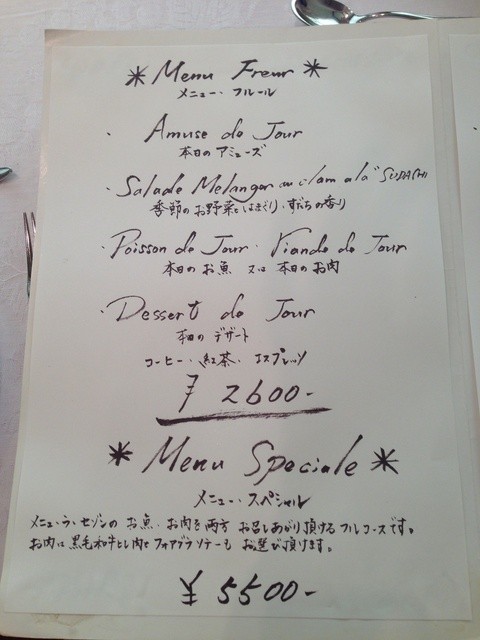 * Menu Freur *
メニュー・フルール
・ Amuse de Jour
本日のアミューズ
・Salade Melanger au clam a la "SUDACHI
季節のお野菜とはまぐり・すだちの香り
・Poisson de Jour ・ Viande de Jour
本日のお魚 又は 本日のお肉
・Dessert de Jour
本日のデザート
コーヒー・紅茶・エスプレッソ
¥ 2600-
* Menu Speciale *
メニュー・スペシャル
メニュー・ラ・セゾンの お魚・お肉を両方 お召しあがり頂けるフルコースです。
お肉は黒毛和牛ヒレ肉とフォアグラソテーも お選び頂けます。
¥ 5500-